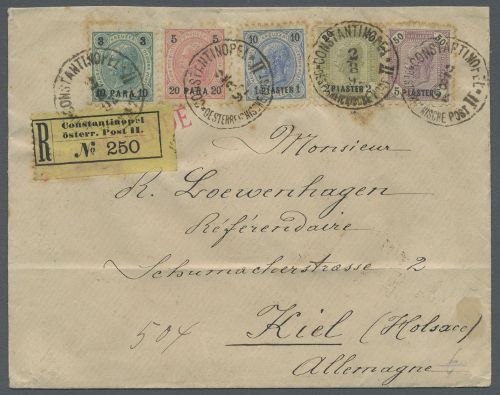 3 3
10 PARA 10
5 5
20 PARA 20
10 10
1 PIASTER 1
20
2 PIASTER 2
50 50
5 PIASTER 5
CONSTANTINOPEL II
CONSTANTINOPEL II
CONSTANTINOPEL II
CONSTANTINOPEL II
R
Constantinopel
österr. Post II.
№ 250
Monsieur
R. Loewenhagen
Référendaire
Schumacherstrasse 2
504 Kiel (Holsace)
Allemagne